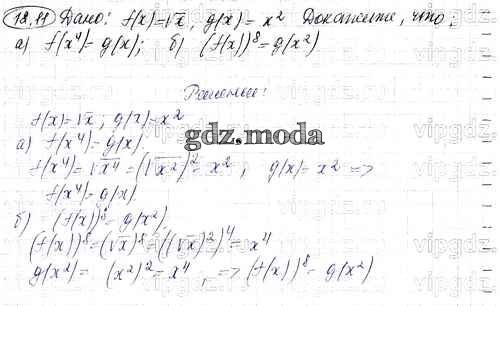 18.11 Дано: f(x)=√x, g(x)=x² Докажите, что:
а) f(x⁴)=g(x); б) (f(x))⁸=g(x²)
Решение:
f(x)=√x; g(x)=x²
а) f(x⁴)=g(x).
f(x⁴)=√x⁴=(√x²)²=x²; g(x)=x² =>
f(x⁴)=g(x).
б) (f(x))⁸=g(x²),
(f(x))⁸=(√x)⁸=((√x)²)⁴=x⁴
g(x²)=(x²)²=x⁴, => (f(x))⁸=g(x²)
gdz.moda